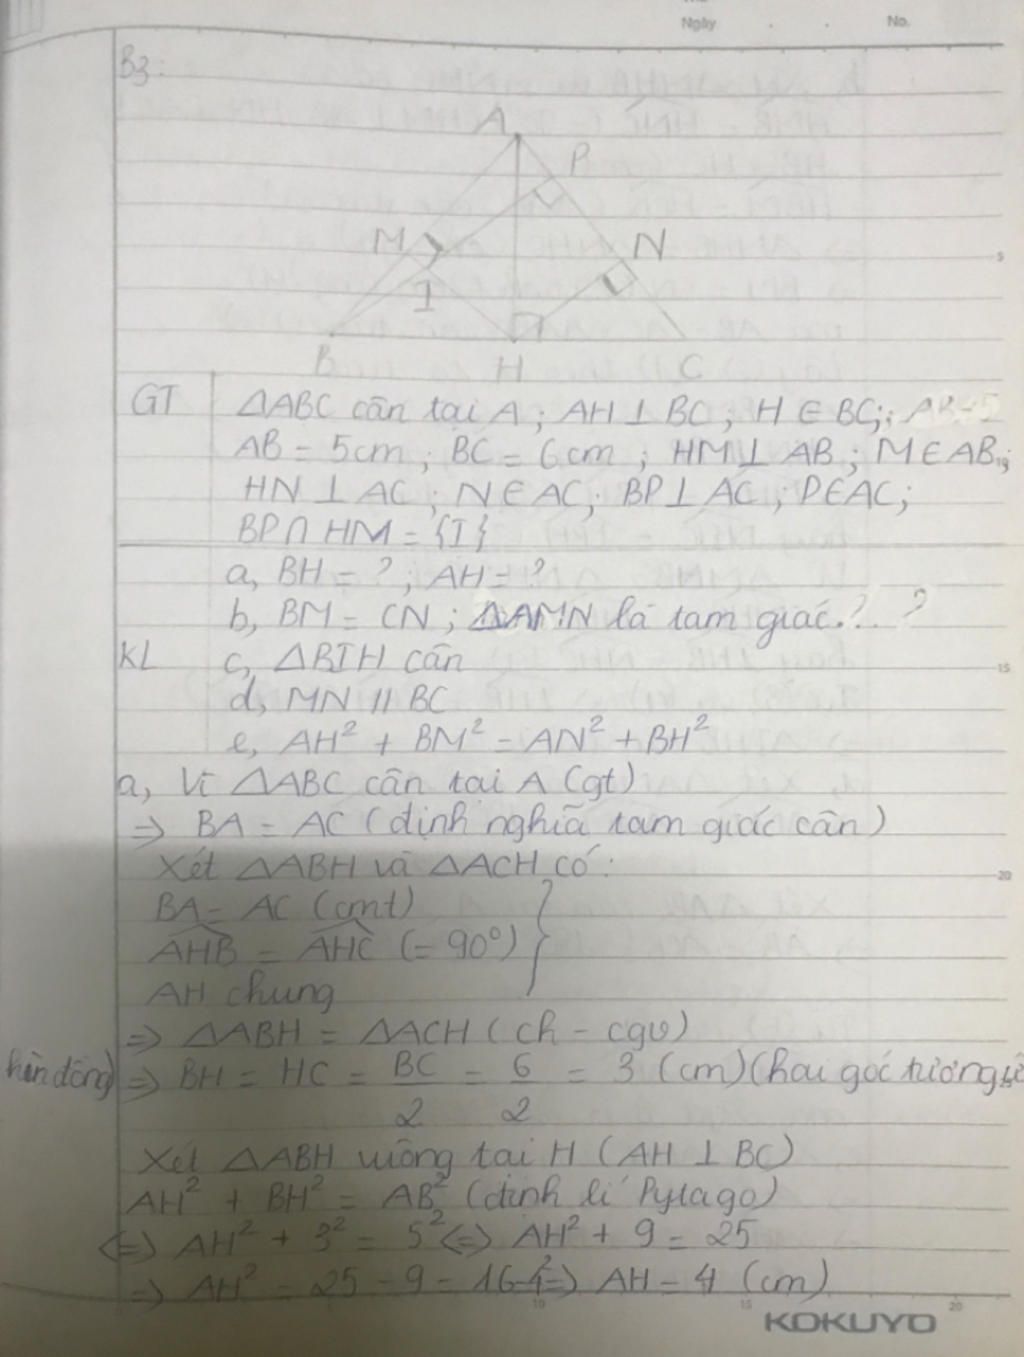 Ngày
No.
B3:
A
P
M
N
I
B
H
C
GT
ΔABC cân tại A; AH⊥BC; H∈BC;
AB = 5cm; BC = 6cm; HM⊥AB; M∈AB;
HN⊥AC; N∈AC; BP⊥AC; P∈AC;
BP∩HM = {I}
a, BH = ?; AH = ?
b, BM = CN; ΔAMN là tam giác.?. ?
KL c, ΔBIH cân
d, MN // BC
e, AH² + BM² = AN² + BH²
a, Vì ΔABC cân tại A (gt)
=> BA = AC (định nghĩa tam giác cân)
Xét ΔABH và ΔACH có:
BA = AC (cmt)
AHB = AHC (= 90°)
AH chung
=> ΔABH = ΔACH (ch - cgv)
=> BH = HC = BC/2 = 6/2 = 3 (cm) (hai góc tương
Xét ΔABH vuông tại H (AH ⊥ BC)
AH² + BH² = AB² (định lí Pytago)
<=> AH² + 3² = 5² <=> AH² + 9 = 25
=> AH² = 25 - 9 = 16 = 4² => AH = 4 (cm)
5
15
20
10
15
20
KOKUYO